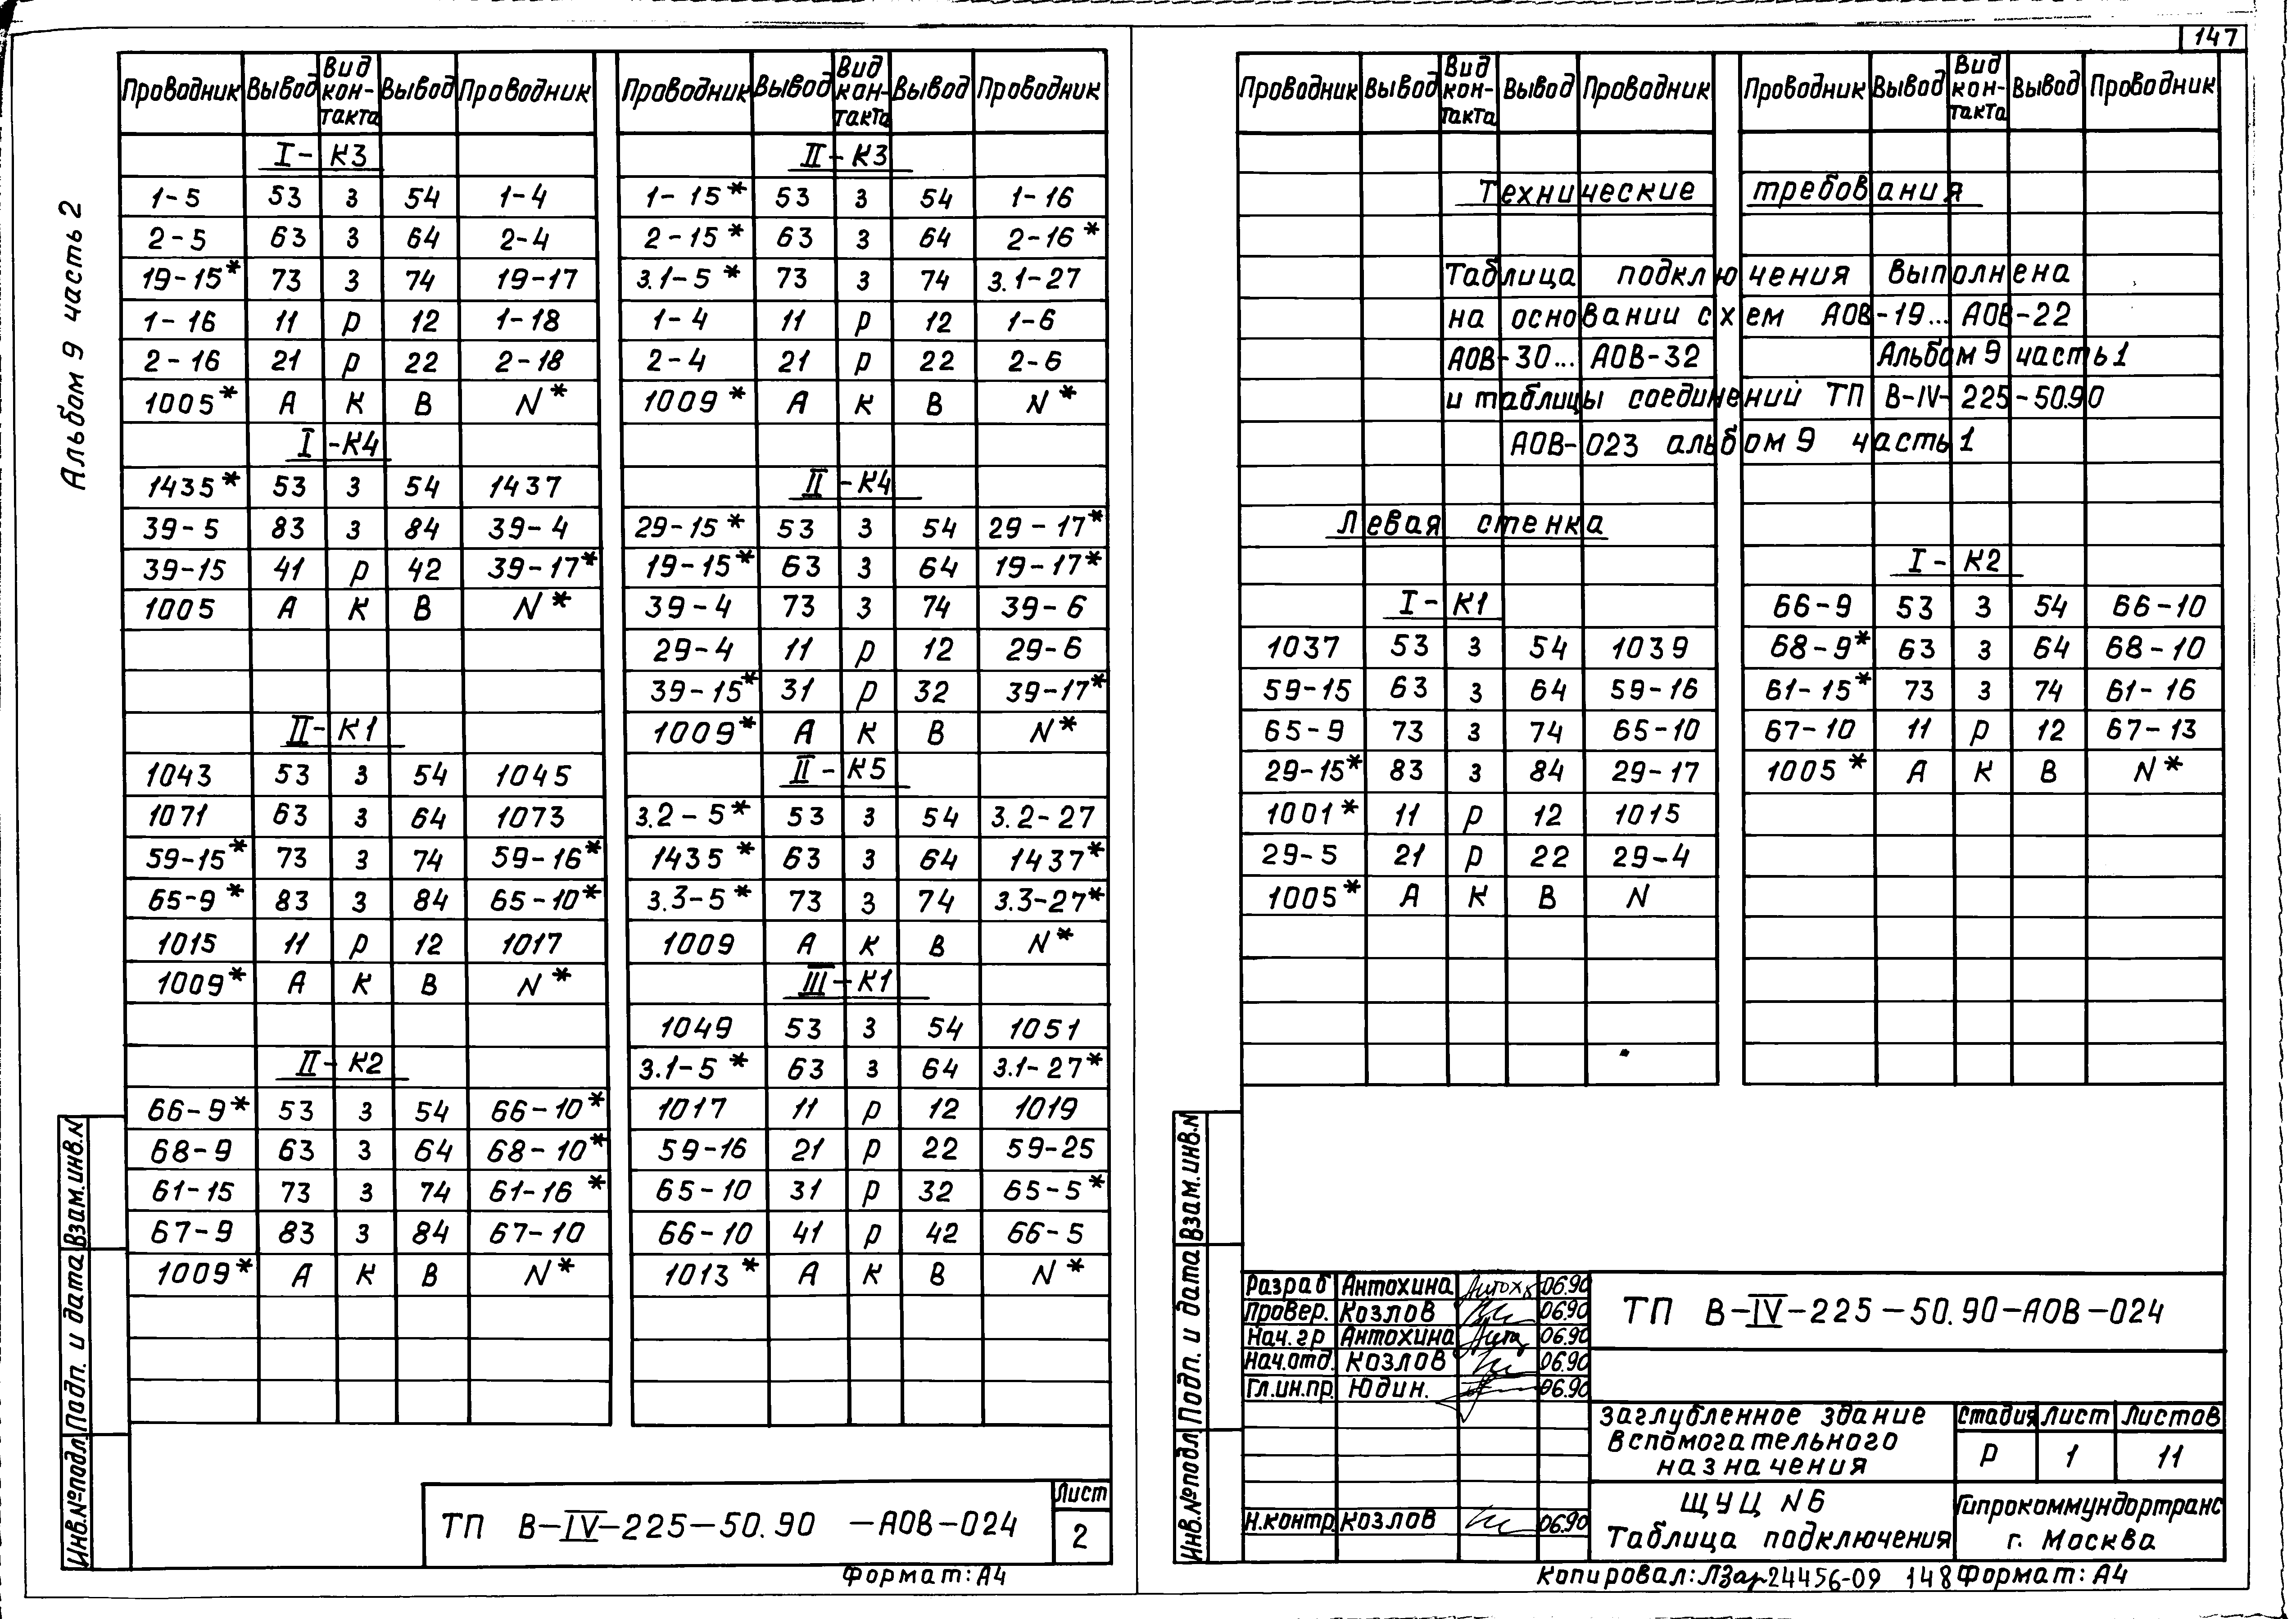 Альбом 9 часть 2
Проводник Вывод Вид кон-такта Вывод Проводник
I-К3
1-5 53 з 54 1-4
2-5 63 з 64 2-4
19-15* 73 з 74 19-17
1-16 11 р 12 1-18
2-16 21 р 22 2-18
1005* А К В N*
I-К4
1435* 53 з 54 1437
39-5 83 з 84 39-4
39-15 41 р 42 39-17*
1005 А К В N*
II-К1
1043 53 з 54 1045
1071 63 з 64 1073
59-15* 73 з 74 59-16*
65-9* 83 з 84 65-10*
1015 11 р 12 1017
1009* А К В N*
II-К2
66-9* 53 з 54 66-10*
68-9 63 з 64 68-10*
61-15 73 з 74 61-16*
67-9 83 з 84 67-10
1009* А К В N*
Проводник Вывод Вид кон-такта Вывод Проводник
II-К3
1-15* 53 з 54 1-16
2-15* 63 з 64 2-16*
3.1-5* 73 з 74 3.1-27
1-4 11 р 12 1-6
2-4 21 р 22 2-6
1009* А К В N*
II-К4
29-15* 53 з 54 29-17*
19-15* 63 з 64 19-17*
39-4 73 з 74 39-6
29-4 11 р 12 29-6
39-15* 31 р 32 39-17*
1009* А К В N*
II-К5
3.2-5* 53 з 54 3.2-27
1435* 63 з 64 1437*
3.3-5* 73 з 74 3.3-27*
1009 А К В N*
III-К1
1049 53 з 54 1051
3.1-5* 63 з 64 3.1-27*
1017 11 р 12 1019
59-16 21 р 22 59-25
65-10 31 р 32 65-5*
66-10 41 р 42 66-5
1013* А К В N*
Взам.инв.N
Подп. и дата
Инв.№подл.
ТП В-IV-225-50.90 -АОВ-024
Лист
2
Формат: А4
147
Проводник Вывод Вид кон-такта Вывод Проводник
Проводник Вывод Вид кон-такта Вывод Проводник
Технические требования
Таблица подключения выполнена
на основании схем АОВ-19... АОВ-22
АОВ-30... АОВ-32 Альбом 9 часть 1
и таблицы соединений ТП В-IV-225-50.90
АОВ-023 альбом 9 часть 1
Левая стенка
I-К1
1037 53 з 54 1039
59-15 63 з 64 59-16
65-9 73 з 74 65-10
29-15* 83 з 84 29-17
1001* 11 р 12 1015
29-5 21 р 22 29-4
1005* А К В N
I-К2
66-9 53 з 54 66-10
68-9* 63 з 64 68-10
61-15* 73 з 74 61-16
67-10 11 р 12 67-13
1005* А К В N*
Взам.инв.N
Подп. и дата
Инв.№подл
Разраб Антохина 06.90
Провер. Козлов 06.90
Нач.гр Антохина 06.90
Нач.отд. Козлов 06.90
Гл.ин.пр. Юдин. 06.90
Н.контр. Козлов 06.90
ТП В-IV-225-50.90-АОВ-024
Заглубленное здание
вспомогательного
назначения
Стадия Лист Листов
Р 1 11
ЩУЦ N6
Таблица подключения
Гипрокоммундортранс
г. Москва
Копировал: 24456-09 148 Формат: А4